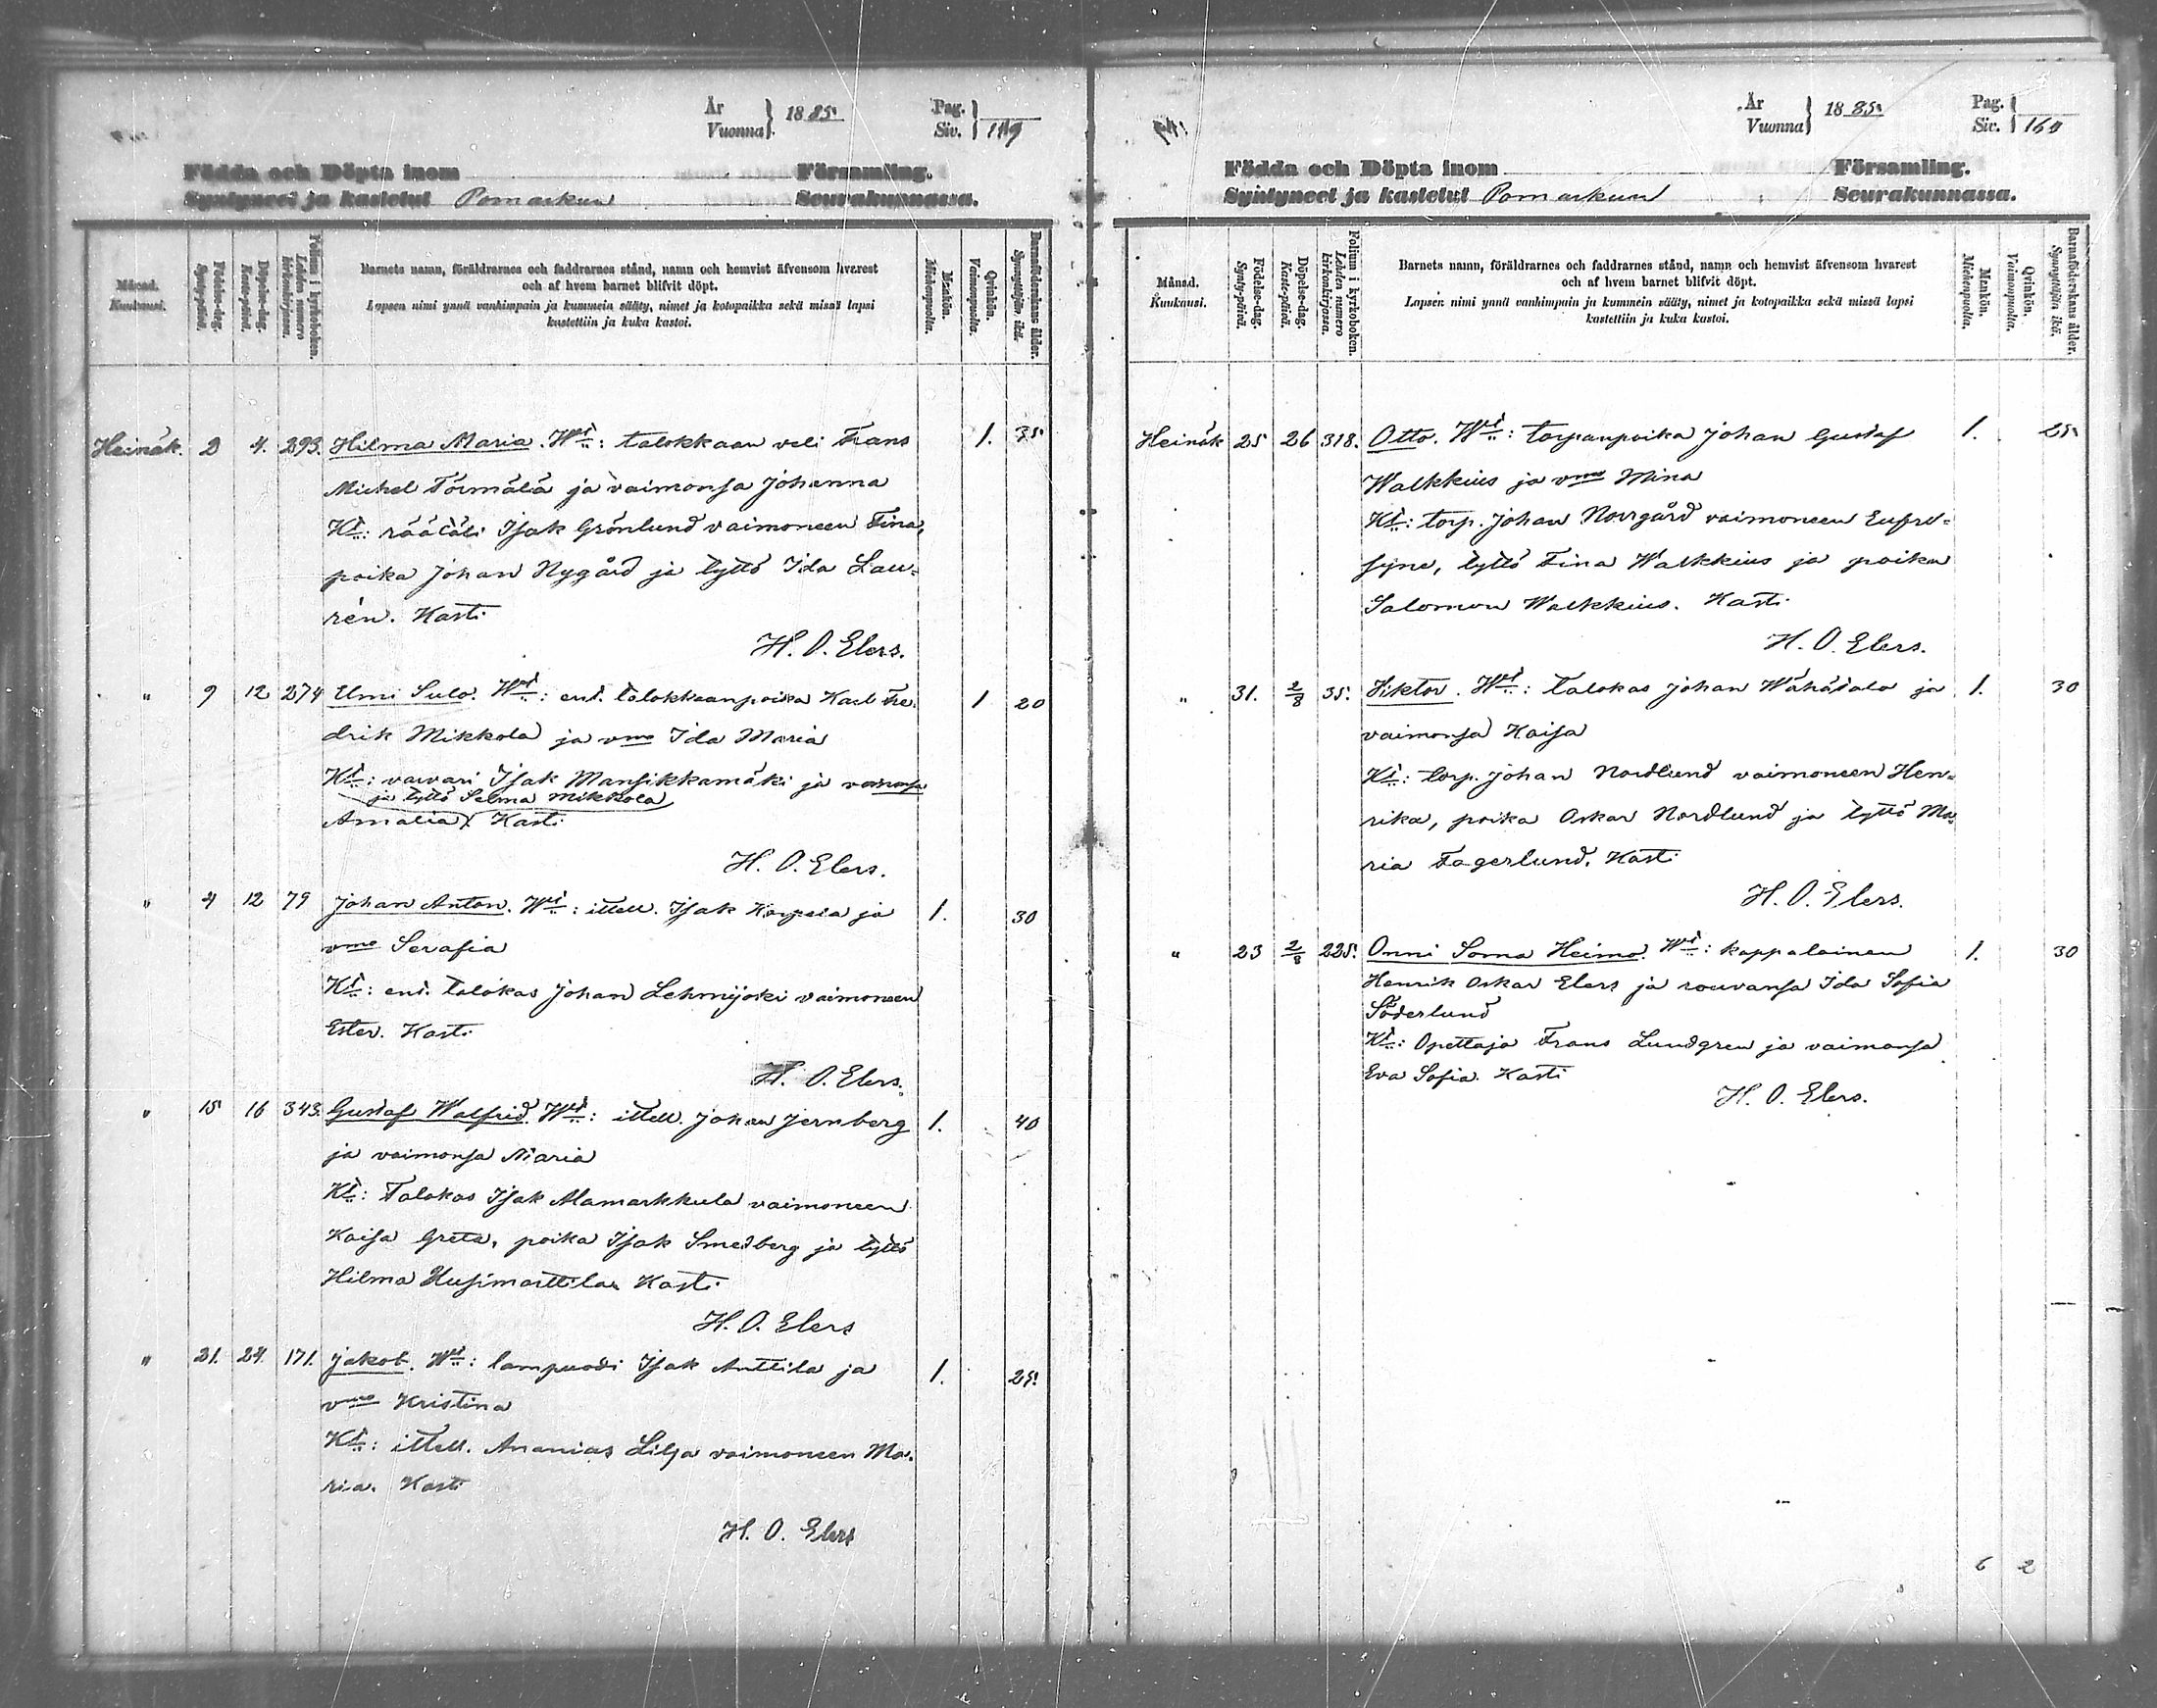 År
Vuonna } 1885. Pag.
Siv. } 159
Födda och Döpta inom Församling.
Syntyneet ja kastetut Pomarkun Seurakunnassa.
Månad.
Kuukausi.
Födelse-dag.
Synty-päivä.
Döpelse-dag.
Kaste-päivä.
Folium i kyrkoboken.
Lehden numero
kirkonkirjassa.
Barnets namn, föräldrarnes och faddrarnes stånd, namn och hemvist äfvensom hvarest
och af hvem barnet blifvit döpt.
Lapsen nimi ynnä vanhimpain ja kummein sääty, nimet ja kotopaikka sekä missä lapsi
kastettiin ja kuka kastoi.
Mankön.
Miehenpuolta.
Qvinkön.
Vaimonpuolta.
Barnaföderskans ålder.
Synnyttäjän ikä.
Heinäk. 2 4. 293. Hilma Maria. Wt: talokkaan veli Frans 1. 35
Michel Törmälä ja vaimonsa Johanna
Kt: räätäli Isak Grönlund vaimoneen Fina,
poika Johan Nygård ja tyttö Ida Lau-
rén. Kasti
H. O. Elers.
" 9 12 274 Umi Sulo. Wt: ent. talokkaanpoika Karl Fre- 1 20
drik Mikkola ja vmo Ida Maria
Kt: vaivari Isak Mansikkamäki ja vaimonsa
ja tyttö Selma Mikkola
Amalia. Kasti
H. O. Elers.
" 4 12 79 Johan Anton. Wt: ittell. Isak Karpela ja 1. 30
vmo Serafia
Kt: ent. talokas Johan Lehmijoki vaimoneen
Ester. Kasti
H. O. Elers.
" 15 16 343. Gustaf Walfrid. Wt: ittell. Johan Jernberg 1. 40
ja vaimonsa Maria
Kt: Talokas Isak Alamarkkula vaimoneen
Kaisa Greta, poika Isak Smedberg ja tyttö
Hilma Uusimarttila. Kasti
H. O. Elers
" 21. 24. 171. Jakob. Wt: lampuodi Isak Anttila ja 1. 25.
vmo Kristina
Kt: ittell. Ananias Lilja vaimoneen Ma-
ria. Kasti
H. O. Elers
År
Vuonna } 1885. Pag.
Siv. } 160
Födda och Döpta inom Församling.
Syntyneet ja kastetut Pomarkun Seurakunnassa.
Månad.
Kuukausi.
Födelse-dag.
Synty-päivä.
Döpelse-dag.
Kaste-päivä.
Folium i kyrkoboken.
Lehden numero
kirkonkirjassa.
Barnets namn, föräldrarnes och faddrarnes stånd, namn och hemvist äfvensom hvarest
och af hvem barnet blifvit döpt.
Lapsen nimi ynnä vanhimpain ja kummein sääty, nimet ja kotopaikka sekä missä lapsi
kastettiin ja kuka kastoi.
Mankön.
Miehenpuolta.
Qvinkön.
Vaimonpuolta.
Barnaföderskans ålder.
Synnyttäjän ikä.
Heinäk 25 26 318. Otto. Wt: torpanpoika Johan Gustaf 1. 25
Walkkius ja vmo Mina
Kt: torp. Johan Norrgård vaimoneen Eufro-
syne, tyttö Fina Walkkius ja poika
Salomon Walkkius. Kasti
H. O. Elers.
" 31. 2/8 35. Hiktor. Wt: Talokas Johan Wähätalo ja 1. 30
vaimonsa Kaisa
Kt: torp. Johan Nordlund vaimoneen Hen-
rika, poika Oskar Nordlund ja tyttö Ma-
ria Fagerlund. Kasti
H. O. Elers.
" 23 2/8 225. Onni Soma Heimo. Wt: kappalainen 1. 30
Henrik Oskar Elers ja rouvansa Ida Sofia
Söderlund
Kt: Opettaja Frans Lundgren ja vaimonsa
Eva Sofia. Kasti
H. O. Elers.
6 2